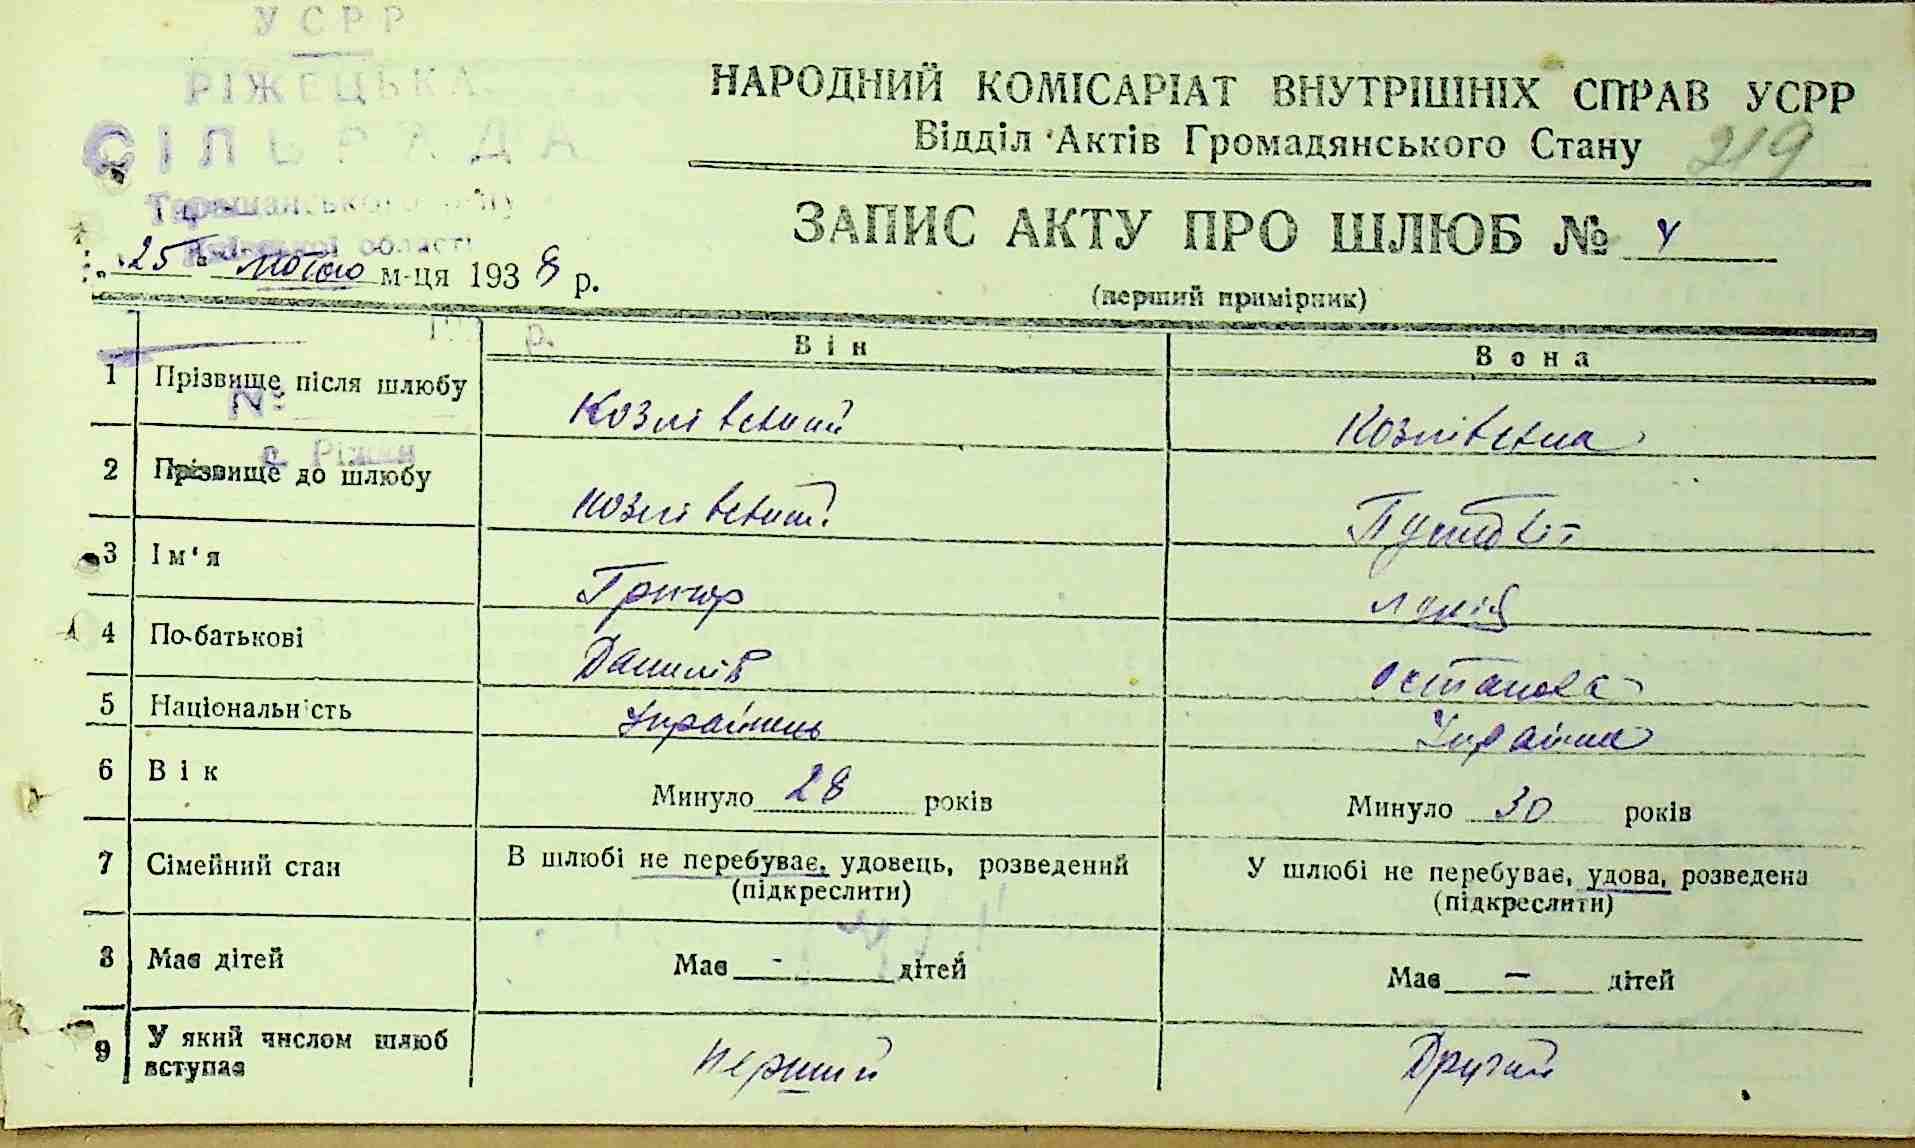 УСРР
РІЖЕЦЬКА
СІЛЬРАДА
Таращанського р-ну
Київської області
НАРОДНИЙ КОМІСАРІАТ ВНУТРІШНІХ СПРАВ УСРР
Відділ Актів Громадянського Стану
219
ЗАПИС АКТУ ПРО ШЛЮБ № 4
„25" лютого м-ця 1938 р.
(перший примірник)
Він Вона
1 Прізвище після шлюбу Козлівський Козлівська
№
с. Ріжки
2 Прізвище до шлюбу Козлівський
3 Ім'я Григор
4 По-батькові Данилів Остапова
5 Національність Українець Українка
6 Вік Минуло 28 років Минуло 30 років
7 Сімейний стан В шлюбі не перебуває, удовець, розведений У шлюбі не перебуває, удова, розведена
(підкреслити) (підкреслити)
8 Має дітей Має - дітей Має — дітей
9 У який числом шлюб вступає перший Другий